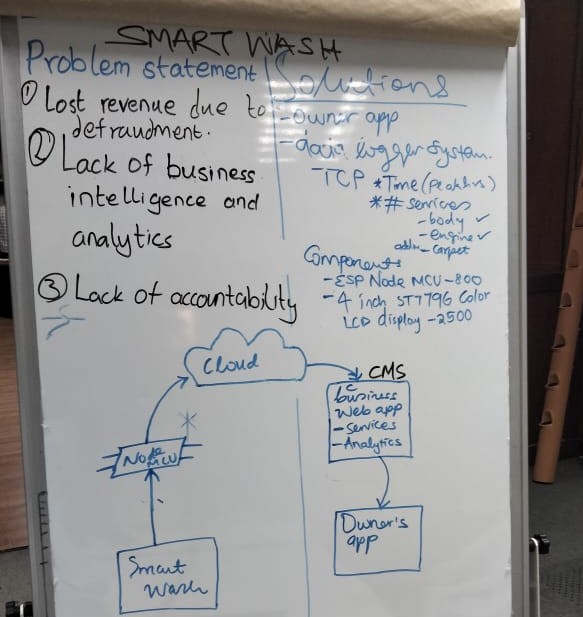 SMART WASH
Problem statement
① Lost revenue due to
defraudment.
② Lack of business
intelligence and
analytics
③ Lack of accountability
Solutions
- owner app
- data logger system.
- TCP * Time (Peak hrs)
* # services
- body ✓
- engine ✓
- Carpet
Components
- ESP Node MCU - 800
- 4 inch ST7796 Color
LCD display - 2500
Cloud
*
Node
MCU
Smart
Wash
CMS
business
Web app
- Services
- Analytics
Owner's
app